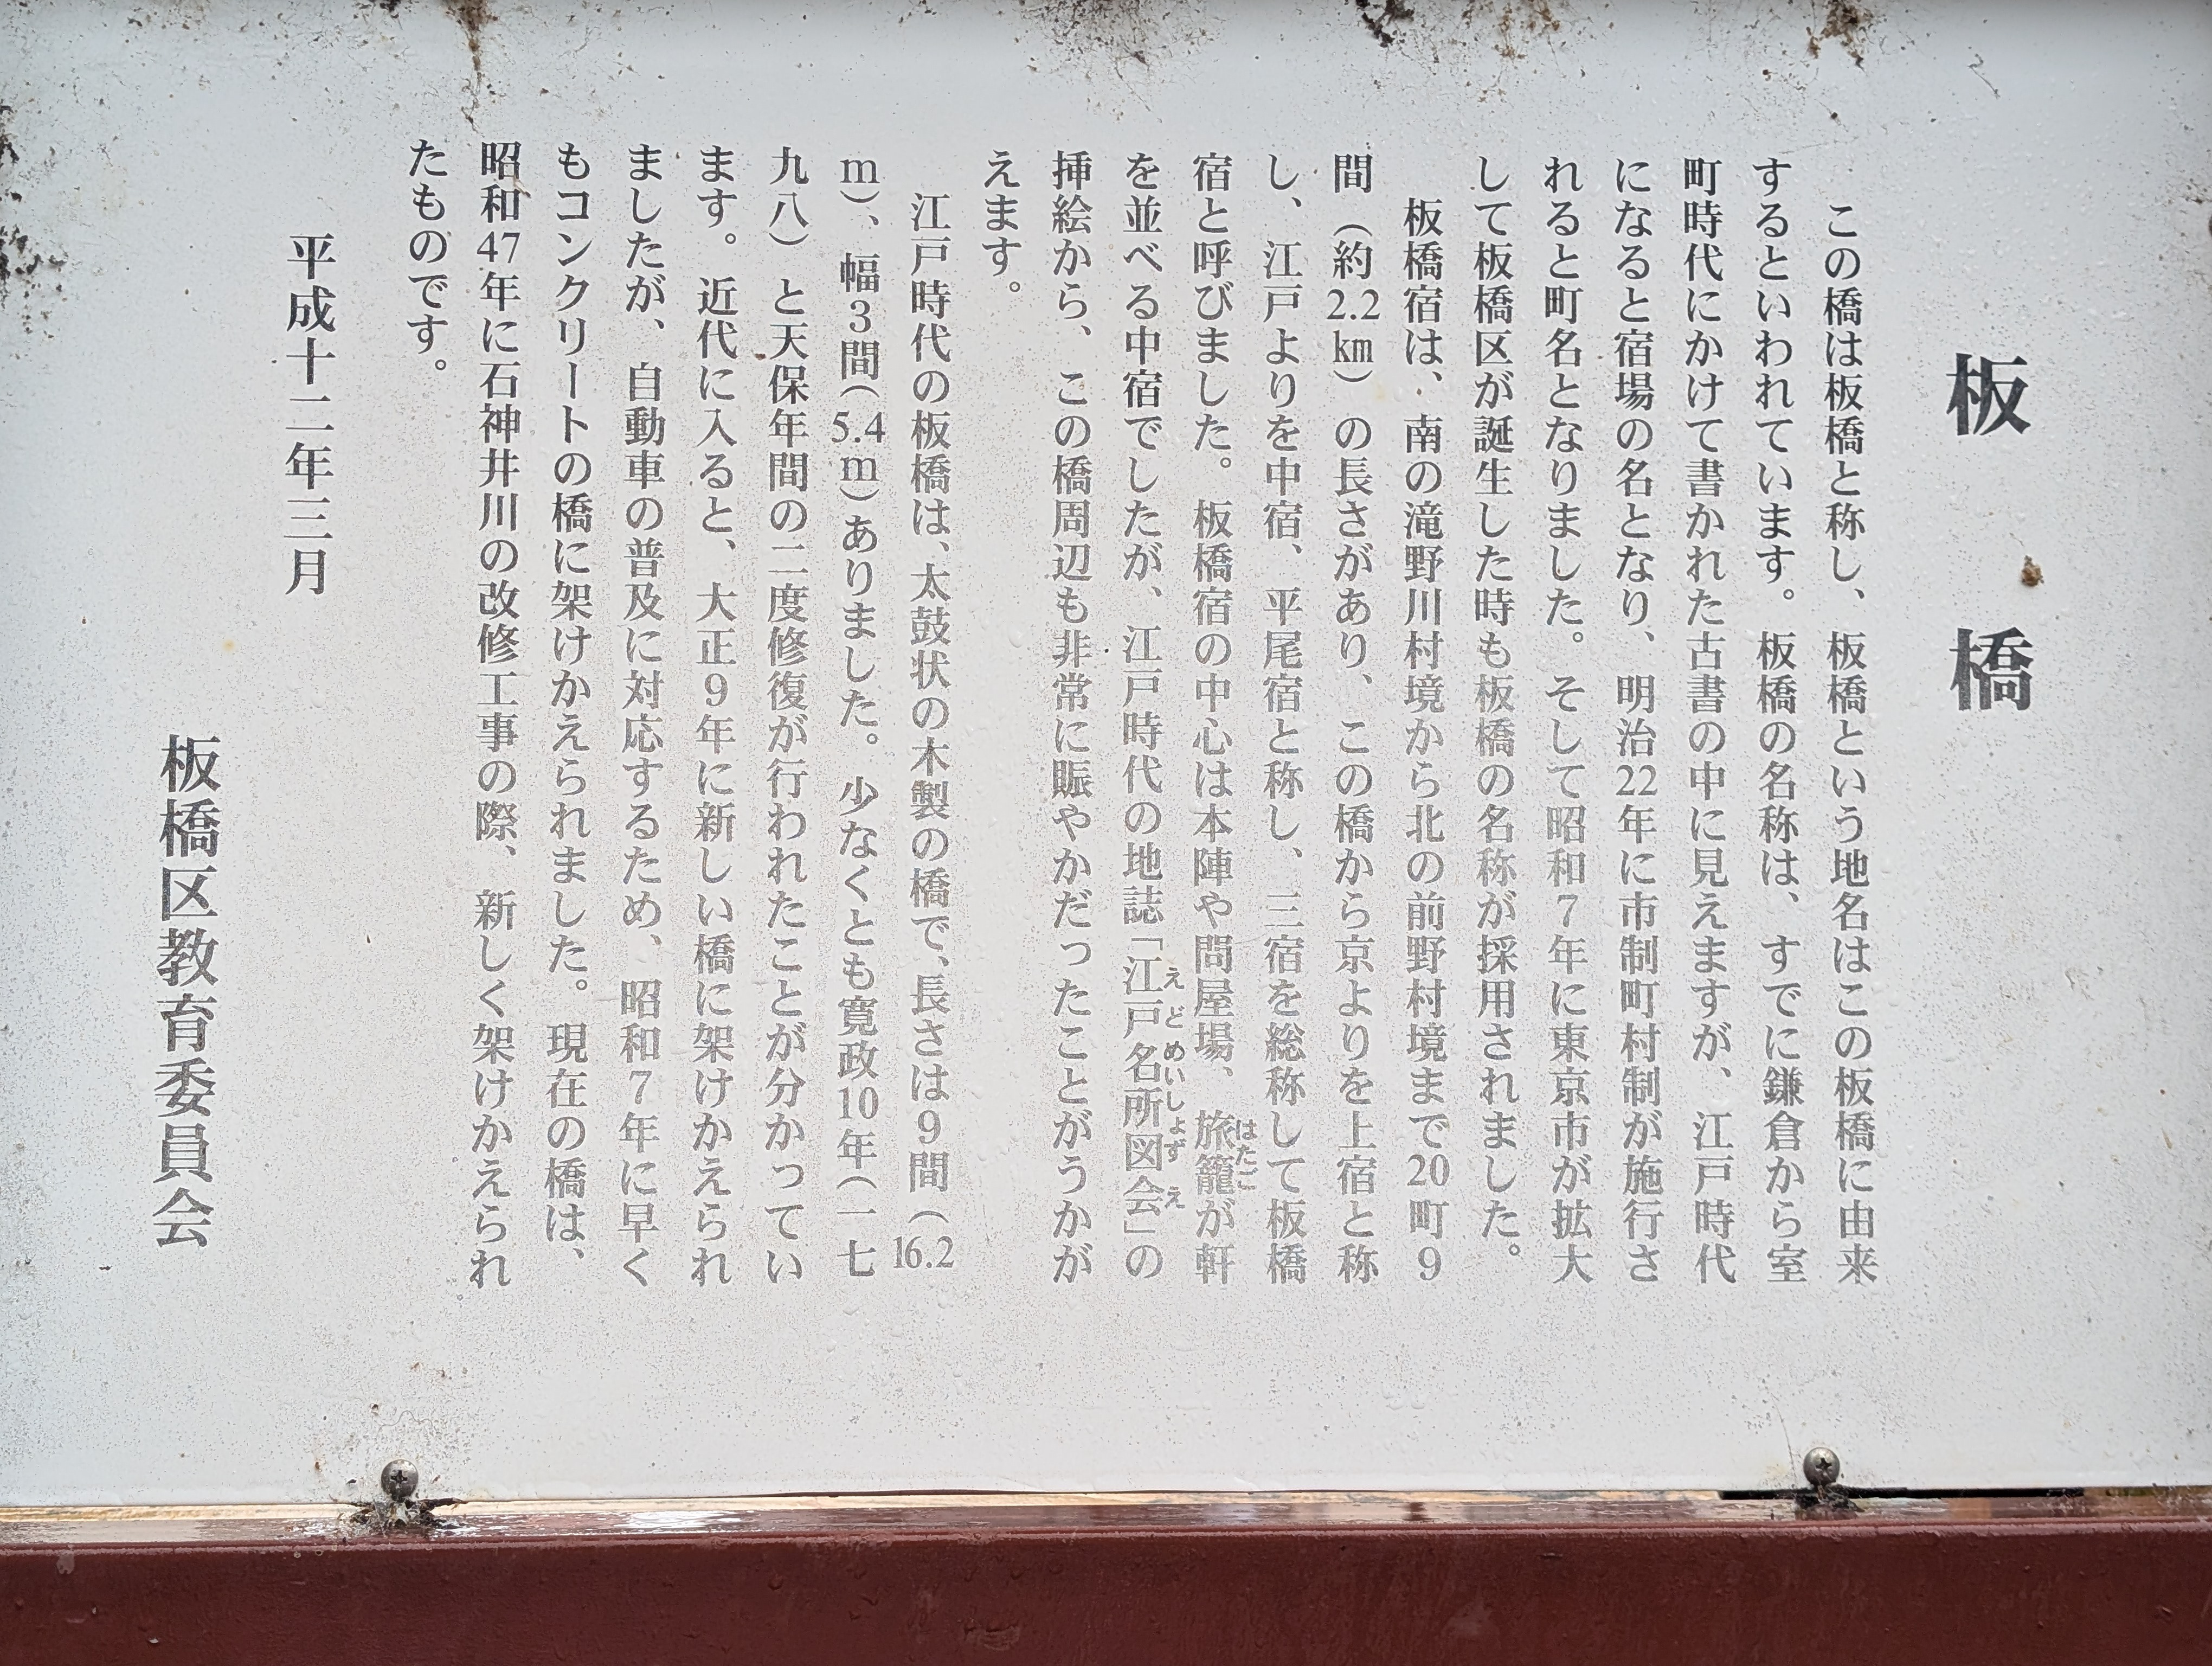 板橋
この橋は板橋と称し、板橋という地名はこの板橋に由来
するといわれています。板橋の名称は、すでに鎌倉から室
町時代にかけて書かれた古書の中に見えますが、江戸時代
になると宿場の名となり、明治22年に市制町村制が施行さ
れると町名となりました。そして昭和7年に東京市が拡大
して板橋区が誕生した時も板橋の名称が採用されました。
板橋宿は、南の滝野川村境から北の前野村境まで20町9
間（約2.2㎞）の長さがあり、この橋から京よりを上宿と称
し、江戸よりを中宿、平尾宿と称し、三宿を総称して板橋
宿と呼びました。板橋宿の中心は本陣や問屋場、旅籠が軒
はたご
を並べる中宿でしたが、江戸時代の地誌「江戸名所図会」の
えどめいしょずえ
挿絵から、この橋周辺も非常に賑やかだったことがうかが
えます。
江戸時代の板橋は、太鼓状の木製の橋で、長さは9間（16.2
m）、幅3間（5.4m）ありました。少なくとも寛政10年（一七
九八）と天保年間の二度修復が行われたことが分かってい
ます。近代に入ると、大正9年に新しい橋に架けかえられ
ましたが、自動車の普及に対応するため、昭和7年に早く
もコンクリートの橋に架けかえられました。現在の橋は、
昭和47年に石神井川の改修工事の際、新しく架けかえられ
たものです。
平成十二年三月
板橋区教育委員会